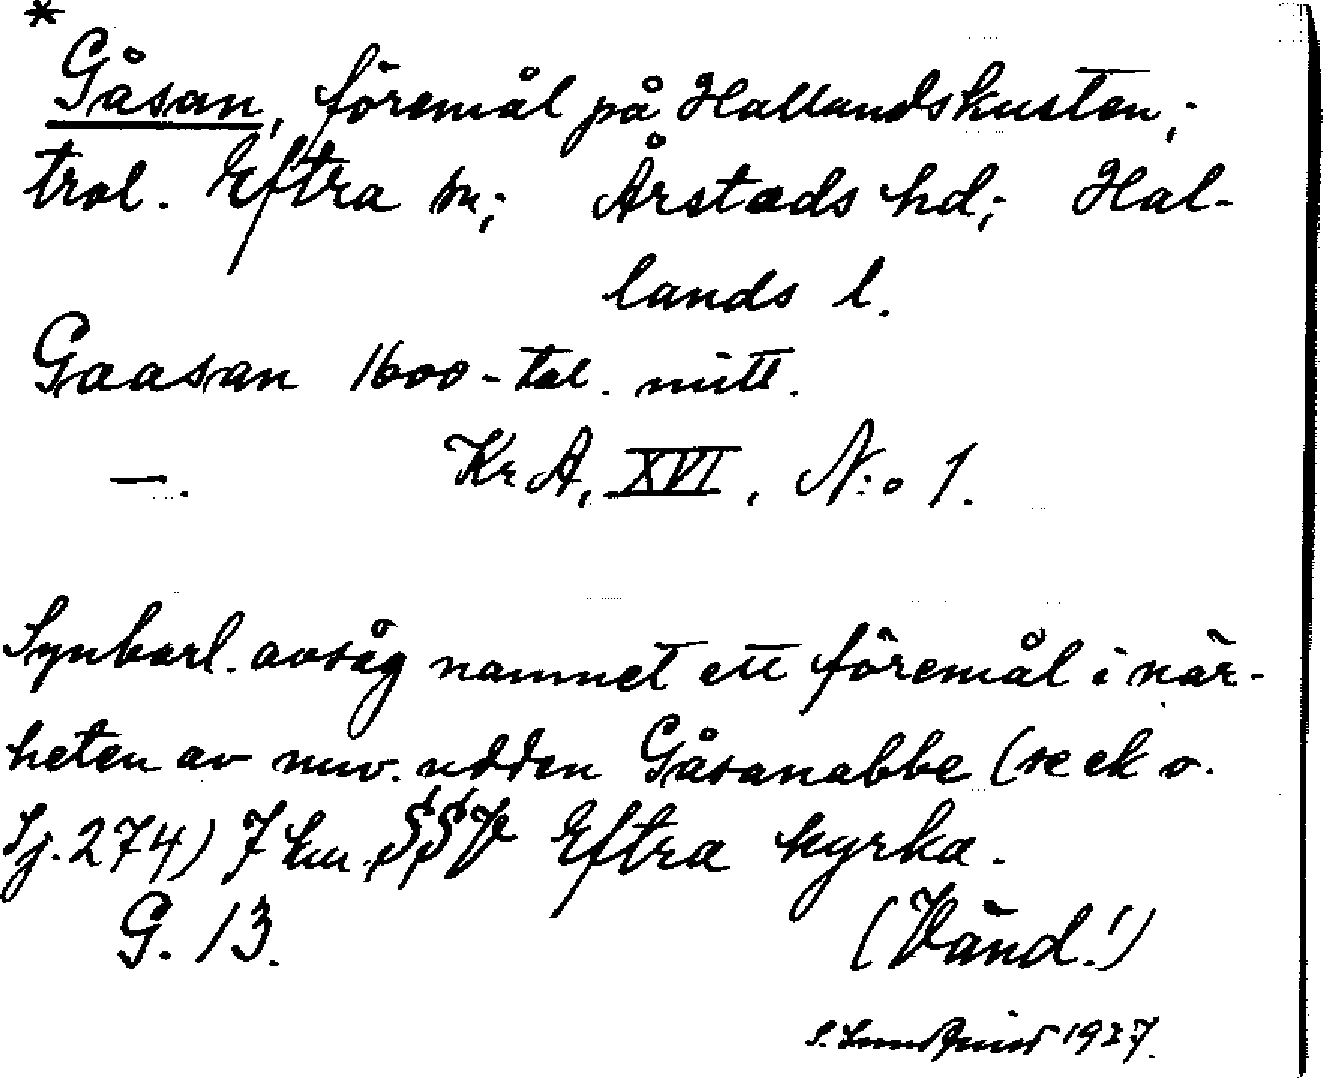 *
Gåsan, föremål på Hallandskusten;
trol. Eftra sn; Årstads hd; Hal-
lands l.
Gaasan 1600-tal. mitt.
—. KrA, XVI, N:o 1.
Synbarl. avsåg namnet ett föremål i när-
heten av nuv. udden Gåsanabbe (se ek o.
Sj. 274) 7 km SSV Eftra kyrka.
G. 13. (Vänd!)
S. Lundqvist 1927.